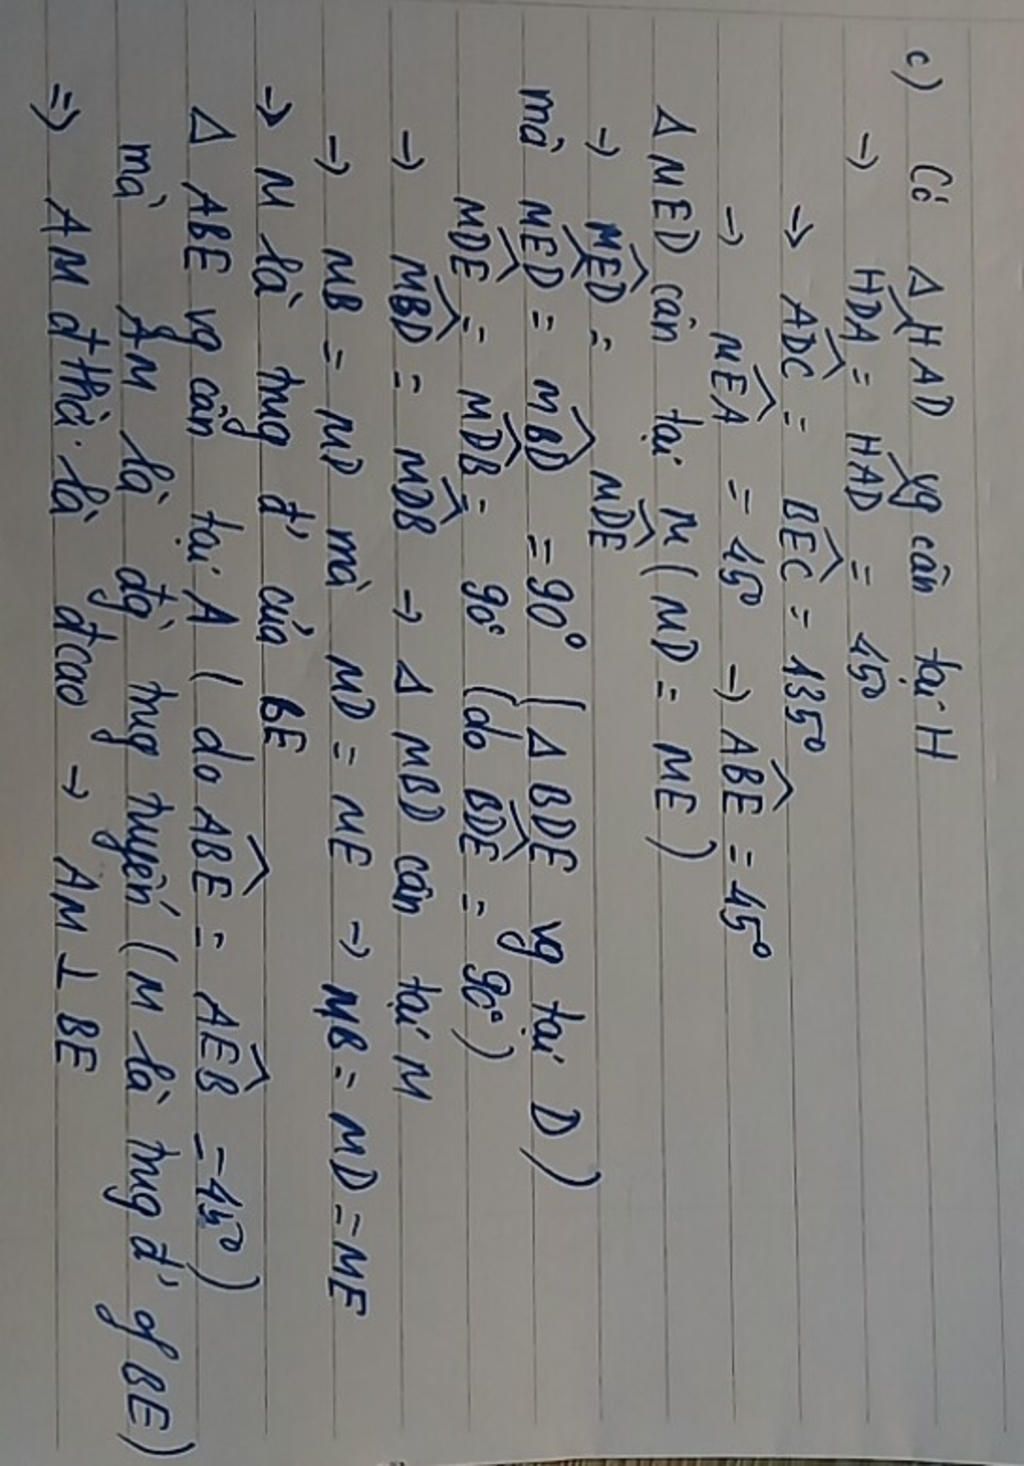 c) Có Δ HAD vg cân tại H
→ \widehat{HDA} = \widehat{HAD} = 45°
→ \widehat{ADC} = \widehat{BEC} = 135°
→ \widehat{MEA} = 45° → \widehat{ABE} = 45°
Δ MED cân tại M (MD = ME)
→ \widehat{MED} = \widehat{MDE}
mà \widehat{MED} = \widehat{MBD} = 90° (Δ BDE vg tại D)
\widehat{MDE} = \widehat{MDB} = 90° (do \widehat{BDE} = 90°)
→ \widehat{MBD} = \widehat{MDB} → Δ MBD cân tại M
→ MB = MD mà MD = ME → MB = MD = ME
→ M là trug đ' của BE
Δ ABE vg cân tại A ( do \widehat{ABE} = \widehat{AEB} = 45°)
mà AM là đg trug tuyến (M là trug đ' of BE)
⇒ AM đ thời là đ cao → AM ⊥ BE